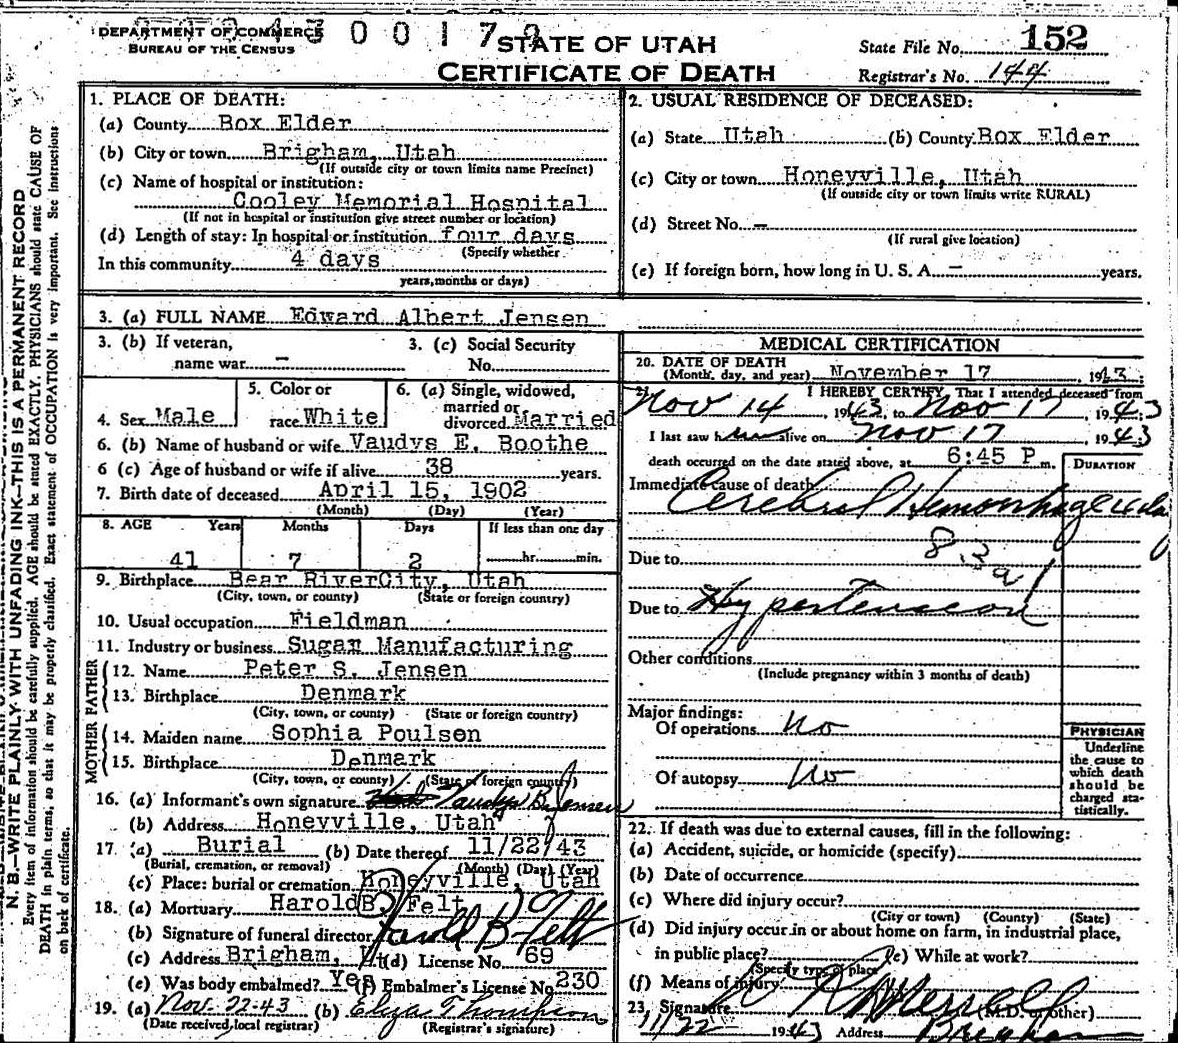 DEPARTMENT OF COMMERCE
BUREAU OF THE CENSUS
3 0 0 1 7
STATE OF UTAH
CERTIFICATE OF DEATH
State File No. 152
Registrar's No. 144
N. B.—WRITE PLAINLY WITH UNFADING INK—THIS IS A PERMANENT RECORD
Every item of information should be carefully supplied. AGE should be stated EXACTLY. PHYSICIANS should state CAUSE OF
DEATH in plain terms, so that it may be properly classified. Exact statement of OCCUPATION is very important. See instructions
on back of certificate.
1. PLACE OF DEATH:
(a) County Box Elder
(b) City or town Brigham, Utah
(If outside city or town limits name Precinct)
(c) Name of hospital or institution:
Cooley Memorial Hospital
(If not in hospital or institution give street number or location)
(d) Length of stay: In hospital or institution four days
(Specify whether
In this community 4 days
years, months or days)
2. USUAL RESIDENCE OF DECEASED:
(a) State Utah (b) County Box Elder
(c) City or town Honeyville, Utah
(If outside city or town limits write RURAL)
(d) Street No. —
(If rural give location)
(e) If foreign born, how long in U. S. A. — years.
3. (a) FULL NAME Edward Albert Jensen
3. (b) If veteran,
name war —
3. (c) Social Security
No.
4. Sex Male
5. Color or
race White
6. (a) Single, widowed,
married or
divorced Married
6. (b) Name of husband or wife Vaudys E. Boothe
6 (c) Age of husband or wife if alive 38 years.
7. Birth date of deceased April 15, 1902
(Month) (Day) (Year)
8. AGE Years Months Days If less than one day
41 7 2 hr. min.
9. Birthplace Bear River City, Utah
(City, town, or county) (State or foreign country)
10. Usual occupation Fieldman
11. Industry or business Sugar Manufacturing
FATHER
12. Name Peter S. Jensen
13. Birthplace Denmark
(City, town, or county) (State or foreign country)
MOTHER
14. Maiden name Sophia Poulsen
15. Birthplace Denmark
(City, town, or county) (State or foreign country)
16. (a) Informant's own signature Vaudys B. Jensen
(b) Address Honeyville, Utah
17. (a) Burial (b) Date thereof 11/22/43
(Burial, cremation, or removal) (Month) (Day) (Year)
(c) Place: burial or cremation Honeyville, Utah
18. (a) Mortuary Harold B. Felt
(b) Signature of funeral director Harold B Felt
(c) Address Brigham, Ut (d) License No. 69
(e) Was body embalmed? Yes (f) Embalmer's License No. 230
19. (a) Nov. 22-43 (b) Eliza Thompson
(Date received local registrar) (Registrar's signature)
MEDICAL CERTIFICATION
20. DATE OF DEATH
(Month, day, and year) November 17, 1943
21. I HEREBY CERTIFY, That I attended deceased from
Nov 14, 1943, to Nov 17, 1943
I last saw him alive on Nov 17, 1943
death occurred on the date stated above, at 6:45 P m.
DURATION
Immediate cause of death
Cerebral Hemorrhage 4 da
Due to
83a
Due to Hypertension
Other conditions
(Include pregnancy within 3 months of death)
Major findings:
Of operations No
Of autopsy No
PHYSICIAN
Underline
the cause to
which death
should be
charged sta-
tistically.
22. If death was due to external causes, fill in the following:
(a) Accident, suicide, or homicide (specify)
(b) Date of occurrence
(c) Where did injury occur?
(City or town) (County) (State)
(d) Did injury occur in or about home on farm, in industrial place,
in public place? (e) While at work?
(Specify type of place)
(f) Means of injury
23. Signature (M.D. or other)
11/22 1943 Address Brigham